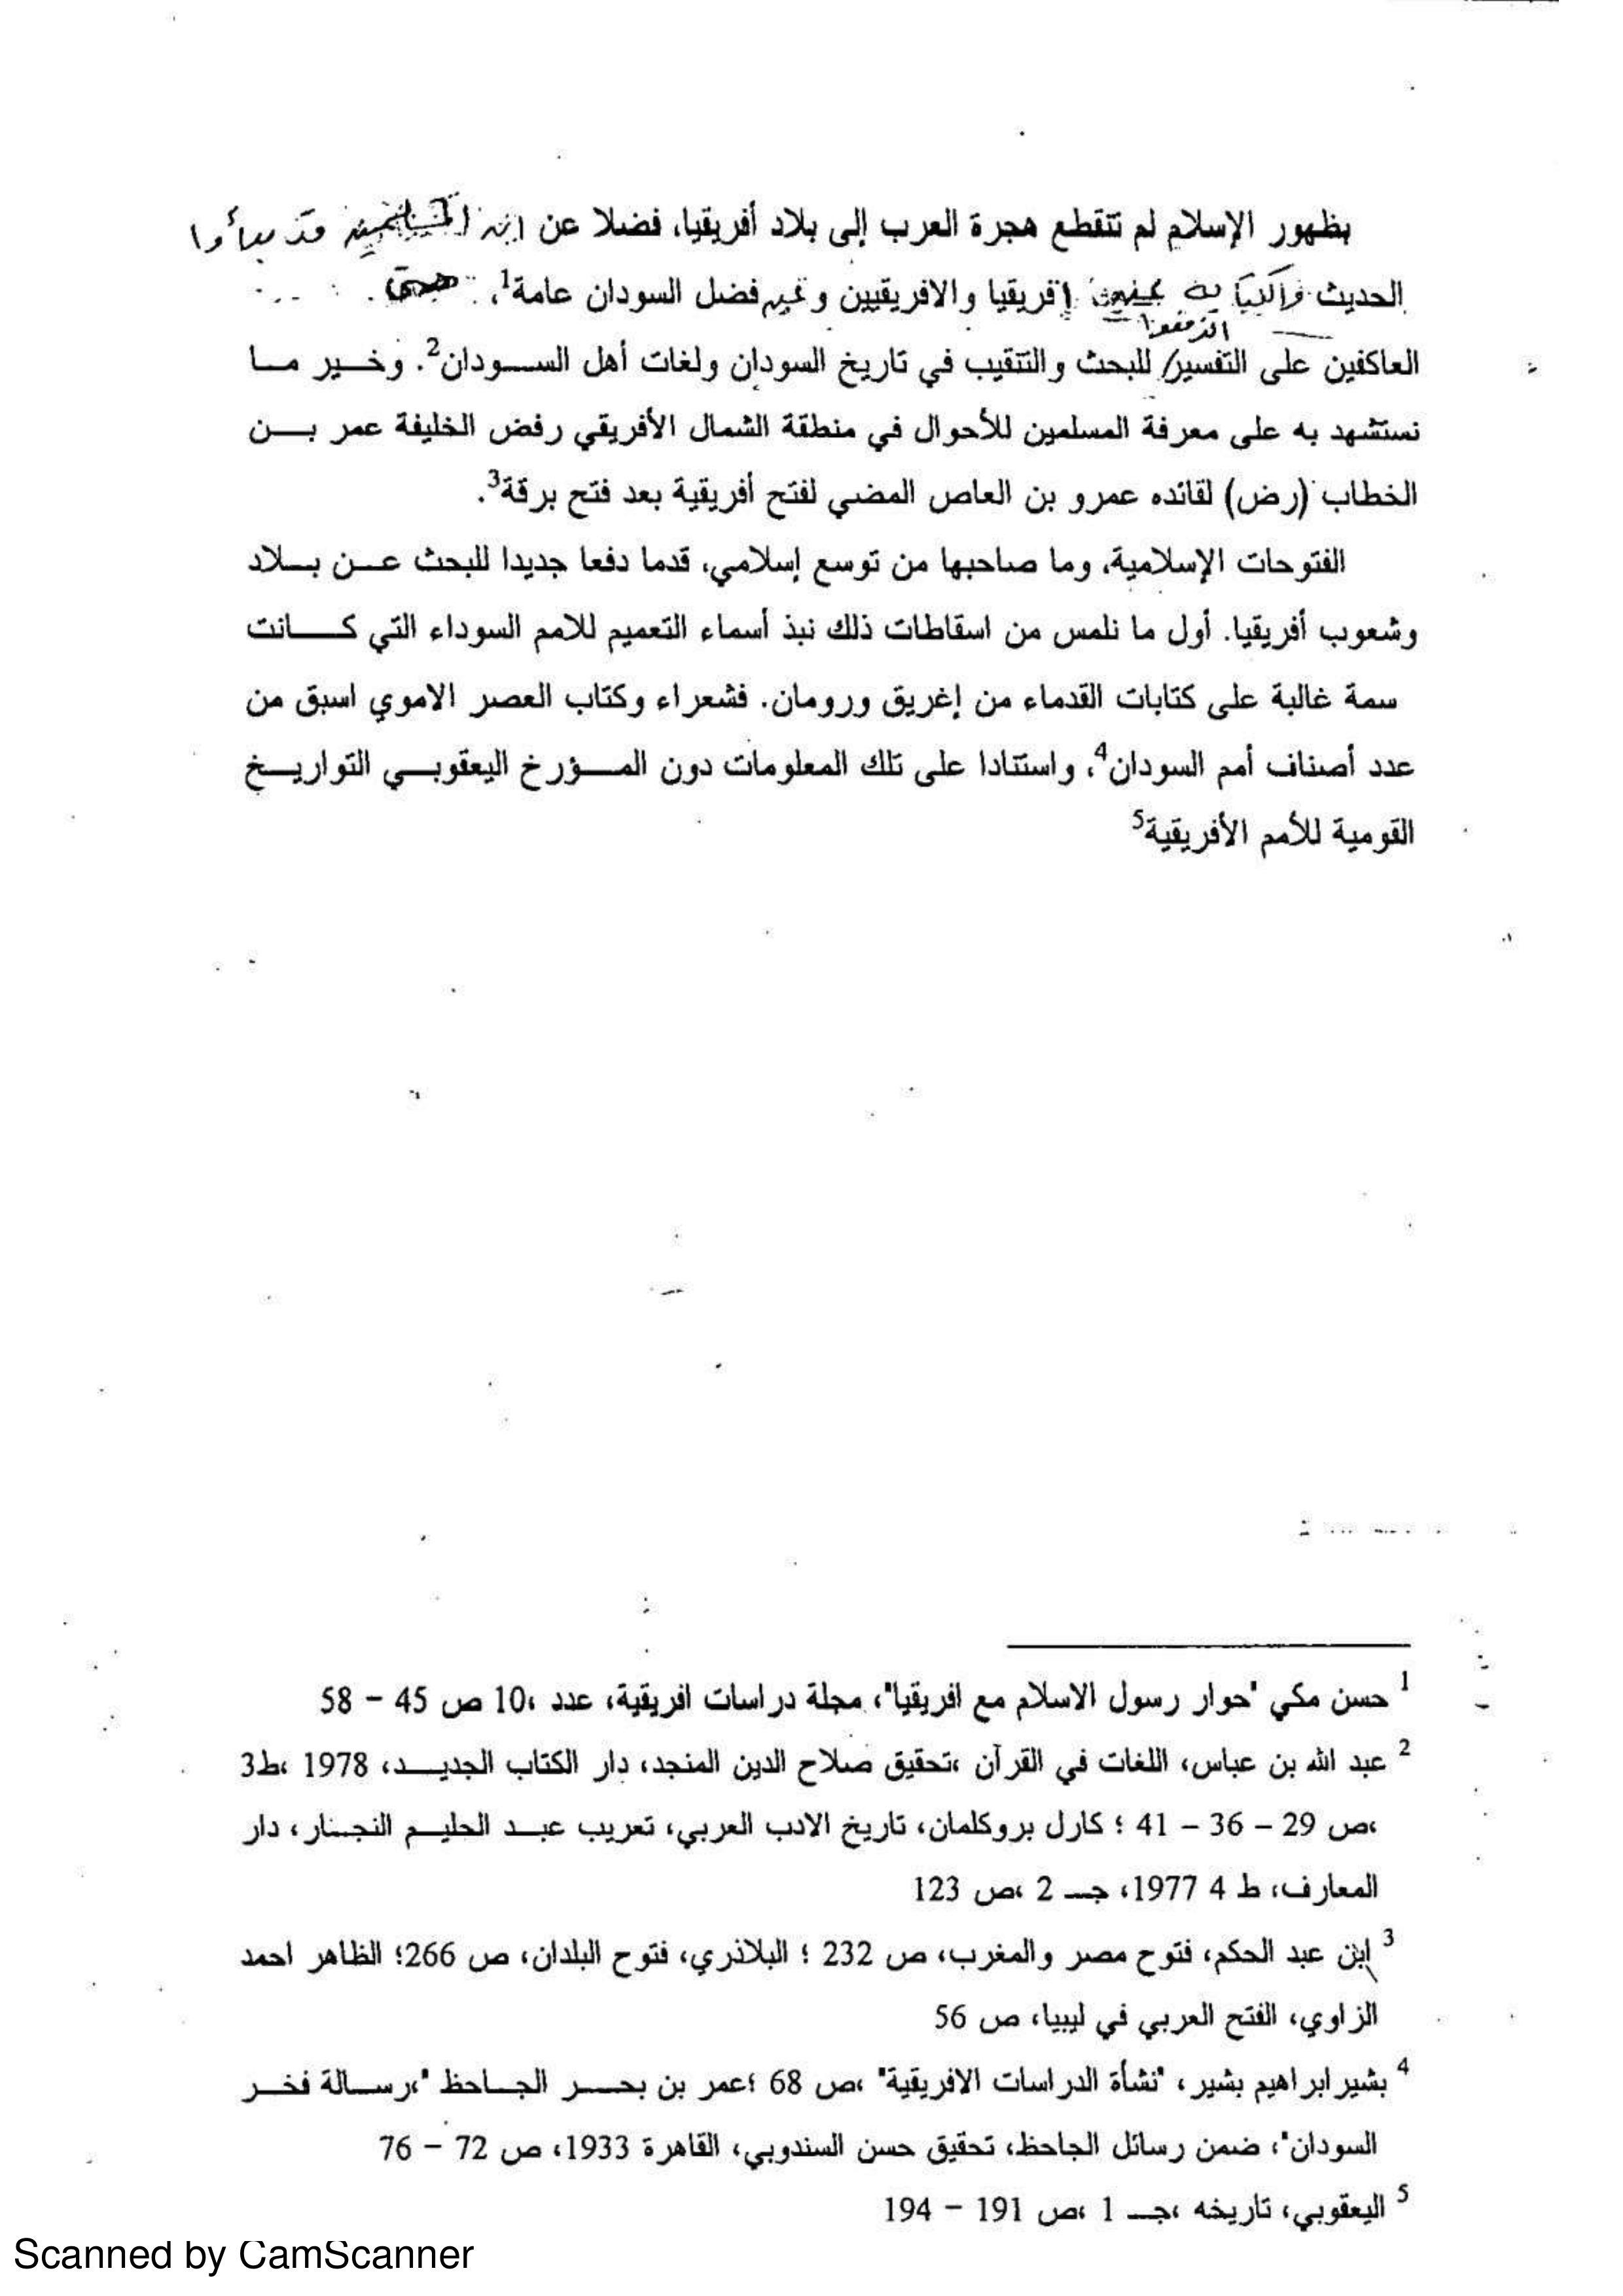 بظهور الإسلام لم تتقطع هجرة العرب إلى بلاد أفريقيا، فضلا عن ان المسلمين قد بدأوا
الحديث إفريقيا والافريقيين و فضل السودان عامة1،
اندفعوا
العاكفين على التفسير/ للبحث والتنقيب في تاريخ السودان ولغات أهل الســودان2. وخــير مــا
نستشهد به على معرفة المسلمين للأحوال في منطقة الشمال الأفريقي رفض الخليفة عمر بــن
الخطاب (رض) لقائده عمرو بن العاص المضي لفتح أفريقية بعد فتح برقة3.
الفتوحات الإسلامية، وما صاحبها من توسع إسلامي، قدما دفعا جديدا للبحث عــن بــلاد
وشعوب أفريقيا. أول ما نلمس من اسقاطات ذلك نبذ أسماء التعميم للامم السوداء التي كـــانت
سمة غالبة على كتابات القدماء من إغريق ورومان. فشعراء وكتاب العصر الاموي اسبق من
عدد أصناف أمم السودان4، واستنادا على تلك المعلومات دون المــؤرخ اليعقوبــي التواريــخ
القومية للأمم الأفريقية5
1 حسن مكي "حوار رسول الاسلام مع افريقيا"، مجلة دراسات افريقية، عدد ،10 ص 45 – 58
2 عبد الله بن عباس، اللغات في القرآن ،تحقيق صلاح الدين المنجد، دار الكتاب الجديــد، 1978 ،ط3
،ص 29 – 36 – 41 ؛ كارل بروكلمان، تاريخ الادب العربي، تعريب عبــد الحليــم النجــار، دار
المعارف، ط 4 1977، جــ 2 ،ص 123
3 إبن عبد الحكم، فتوح مصر والمغرب، ص 232 ؛ البلاذري، فتوح البلدان، ص 266؛ الظاهر احمد
الزاوي، الفتح العربي في ليبيا، ص 56
4 بشير ابراهيم بشير، "نشأة الدراسات الافريقية" ،ص 68 ؛عمر بن بحــر الجــاحظ "،رســالة فخــر
السودان"، ضمن رسائل الجاحظ، تحقيق حسن السندوبي، القاهرة 1933، ص 72 – 76
5 اليعقوبي، تاريخه ،جــ 1 ،ص 191 – 194
Scanned by CamScanner